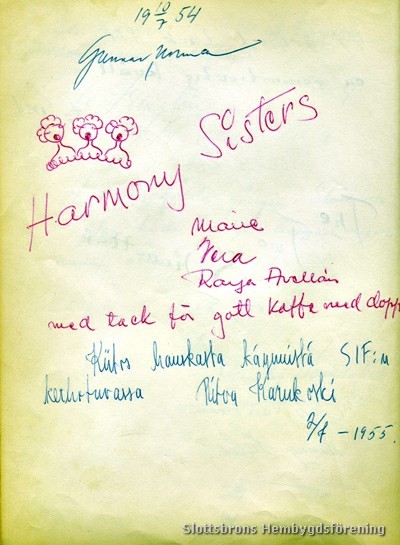 19 10/7 54
Gunnar
Harmony Sisters
Maire
Vera
Raija Avellan
med tack för gott kaffe med dopp
Kiitos hauskasta käynnistä SIF:n
kerhotuvassa Ritva Karukoski
2/7 – 1955.
Slottsbrons Hembygdsförening